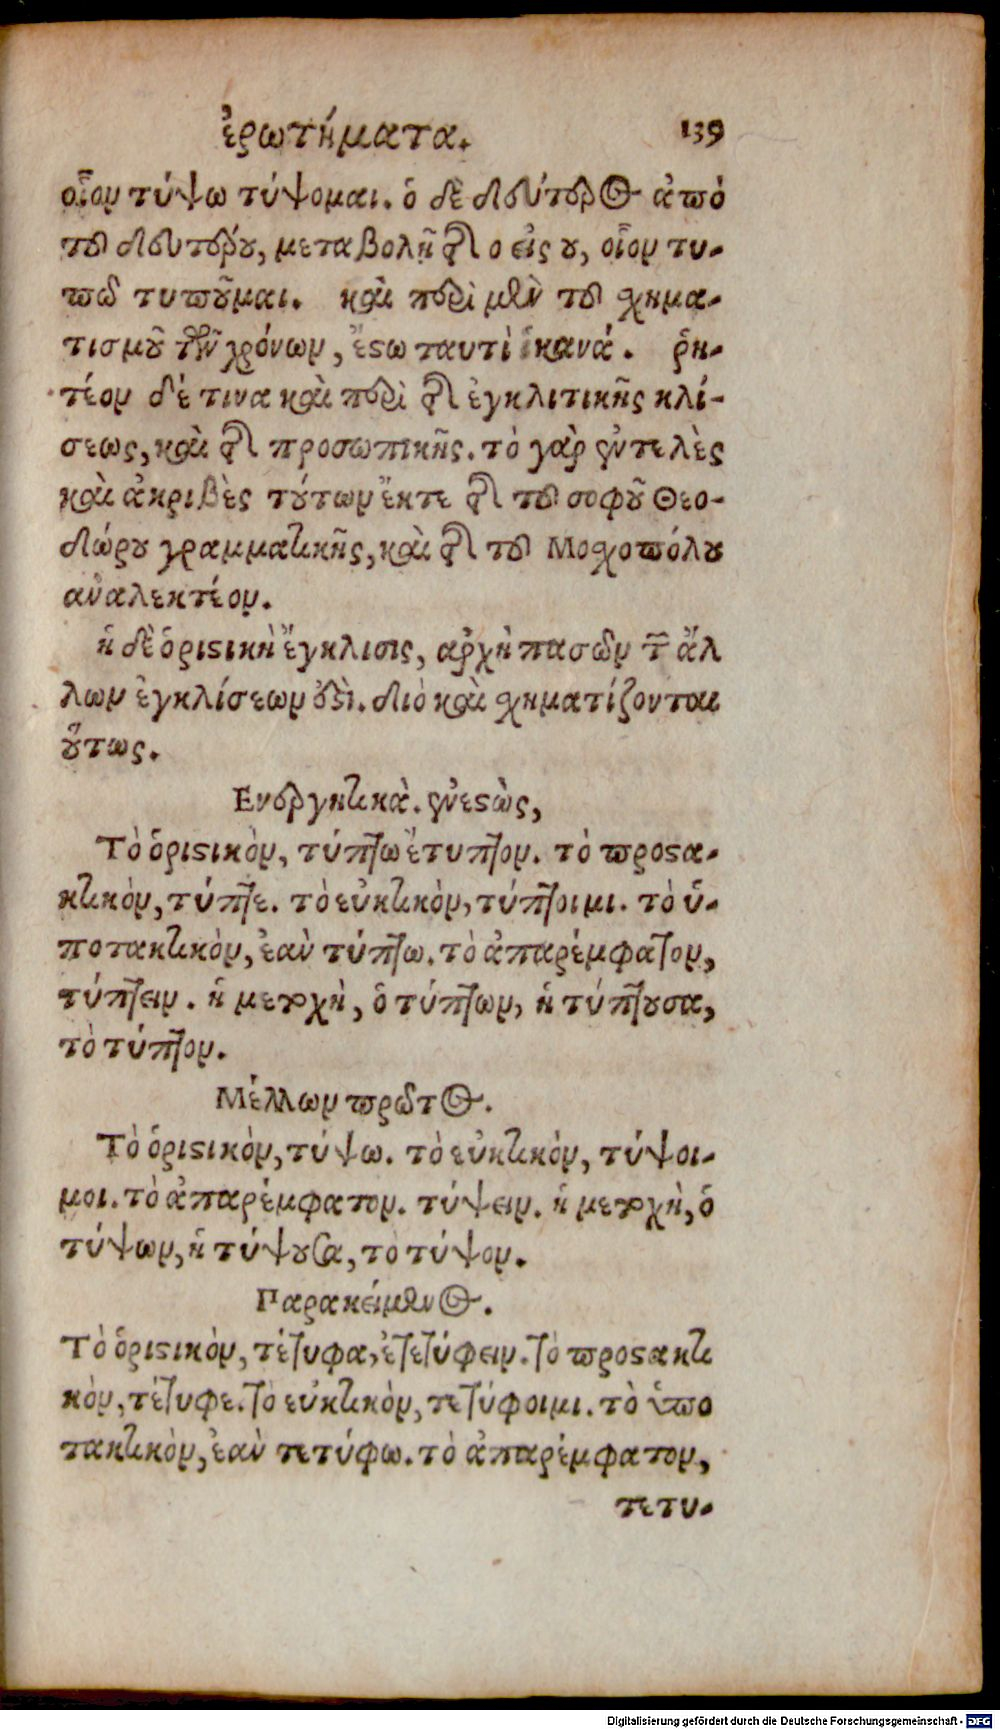 ἐρωτήματα. 139
οἷον τύψω τύψομαι. ὁ δὲ δεύτερος ἀπὸ
τοῦ δευτέρου, μεταβολῇ τῆς ο εἰς ου, οἷον τυ-
πῶ τυποῦμαι. καὶ περὶ μὲν τοῦ χημα-
τισμοῦ τῶν χρόνων, ἔστω ταυτὶ ἱκανά. ῥη-
τέον δέ τινα καὶ περὶ τῆς ἐγκλιτικῆς κλί-
σεως, καὶ τῆς προσωπικῆς. τὸ γὰρ ἐντελὲς
καὶ ἀκριβὲς τούτων ἔκτε τῆς τοῦ σοφοῦ Θεο-
δώρου γραμματικῆς, καὶ τῆς τοῦ Μοσχοπόλου
ἀναλεκτέον.
ἡ δὲ ὁριστικὴ ἔγκλισις, ἀρχὴ πασῶν τῶν ἄλ
λων ἐγκλίσεων ἐστὶ. διὸ καὶ σχηματίζονται
οὕτως.
Ενεργητικὰ. ἐνεστὼς,
Τὸ ὁριστικὸν, τύπτω ἔτυπτον. τὸ προστα-
κτικὸν, τύπτε. τὸ εὐκτικὸν, τύπτοιμι. τὸ ὑ-
ποτακτικὸν, ἐὰν τύπτω. τὸ ἀπαρέμφατον,
τύπτειν. ἡ μετοχὴ, ὁ τύπτων, ἡ τύπτουσα,
τὸ τύπτον.
Μέλλων πρῶτος.
Τὸ ὁριστικὸν, τύψω. τὸ εὐκτικὸν, τύψοι-
μοι. τὸ ἀπαρέμφατον. τύψειν. ἡ μετοχὴ, ὁ
τύψων, ἡ τύψουσα, τὸ τύψον.
Παρακείμενος.
Τὸ ὁριστικὸν, τέτυφα, ἐτετύφειν. τὸ προστακτι
κὸν, τέτυφε. τὸ εὐκτικὸν, τετύφοιμι. τὸ ὑπο
τακτικὸν, ἐὰν τετύφω. τὸ ἀπαρέμφατον,
τετυ-
Digitalisierung gefördert durch die Deutsche Forschungsgemeinschaft - DFG